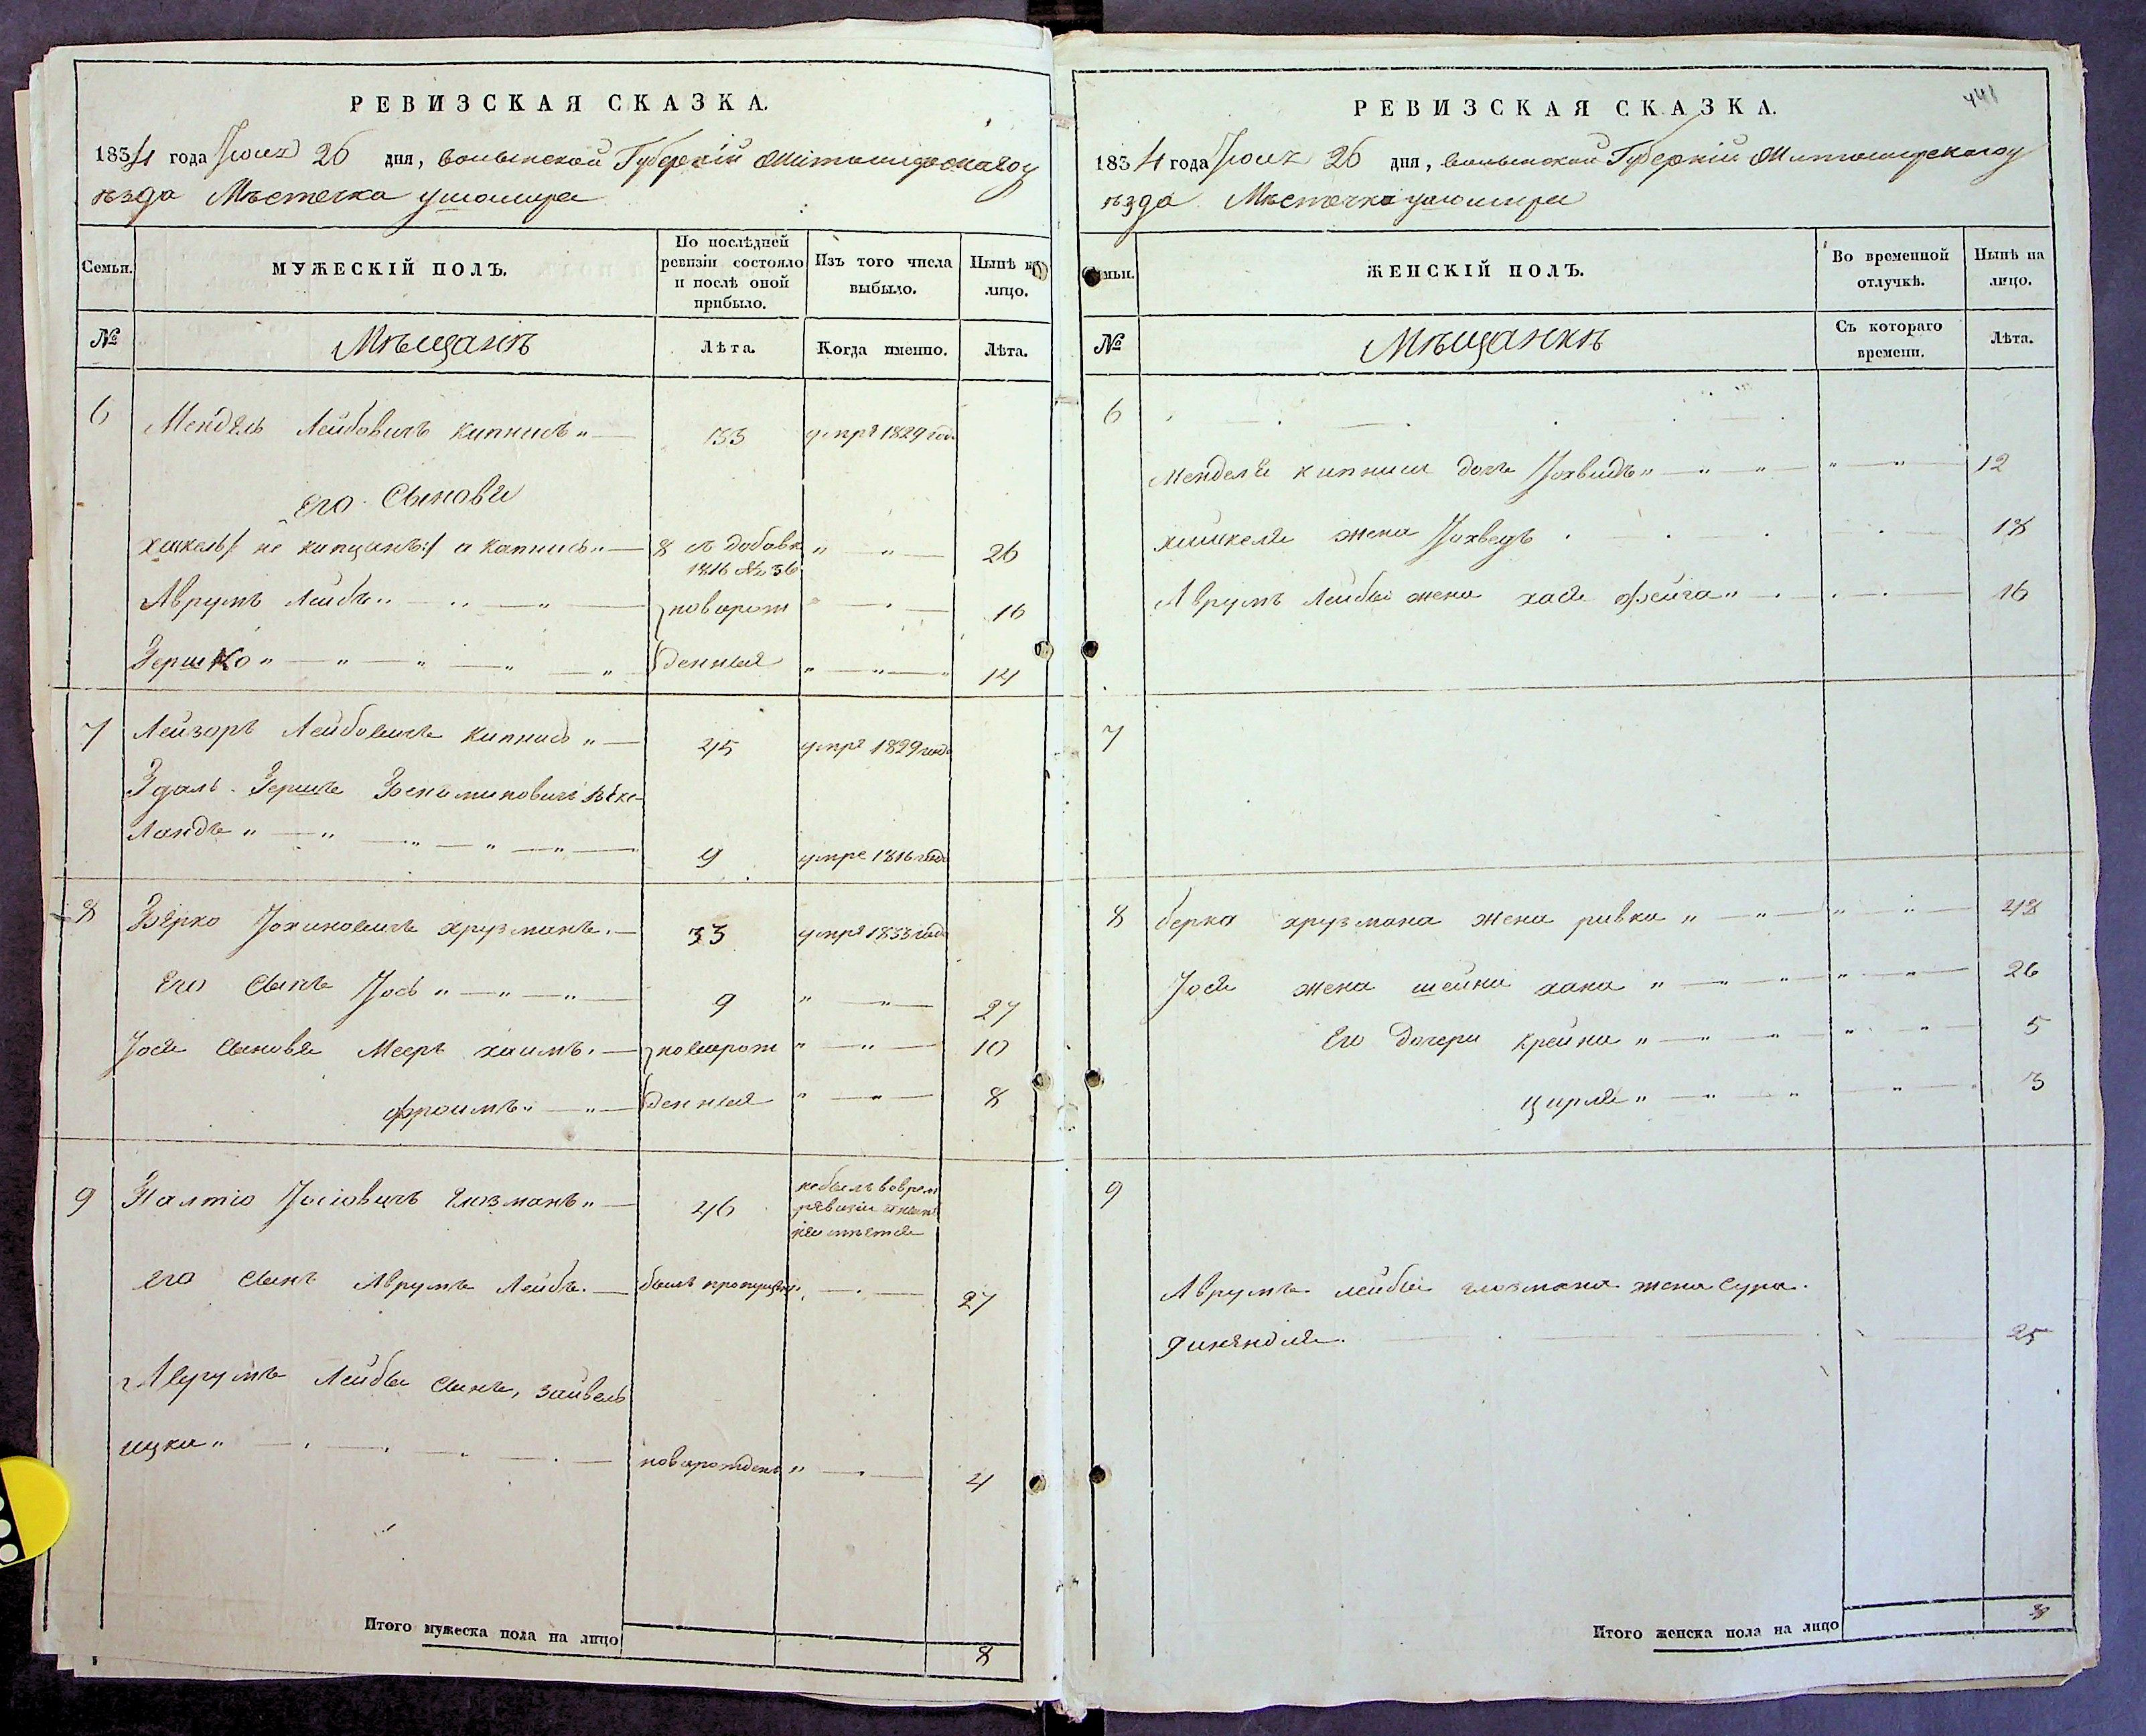 РЕВИЗСКАЯ СКАЗКА.
1834 года Іюня 26 дня, волынской Губерніи Житомирскаго у
ѣзда Мѣстечка ушомира
Семьи.
МУЖЕСКІЙ ПОЛЪ.
По послѣдней ревизіи состояло и послѣ оной прибыло.
Изъ того числа выбыло.
Нынѣ на лицо.
№
Мѣщанѣ
Лѣта.
Когда именно.
Лѣта.
6 Мендель Лейбовичъ кипнисъ 33 умре 1829 года
его Сынови
хаскель /: не кипцанъ :/ а кипнисъ 8 съ добавк 26
1816 № 36
Аврумъ Лейба новорож 16
Гершко денныя 14
7 Лейзоръ Лейбовичъ кипнисъ 45 умре 1829 года
Гершъ Беніминовичъ
ландъ 9 умре 1816 года
8 Берко хрузманъ 33 умре 1833 года
его Сынъ Іось 9 27
Іося Сыновья Мееръ хаимъ новорож 10
фроимъ денныя 8
9 Іосіовичъ глозманъ 46 не былъ во врем
ревизіи
его Сынъ Аврумъ Лейба былъ пропущенъ 27
Аврумъ Лейбы Сынъ, зайвель
ицка новорожденъ 4
Итого мужеска пола на лицо 8
441
РЕВИЗСКАЯ СКАЗКА.
1834 года Іюня 26 дня, волынской Губерніи Житомирскаго у
ѣзда Мѣстечка ушомира
Семьи.
ЖЕНСКІЙ ПОЛЪ.
Во временной отлучкѣ.
Нынѣ на лицо.
№
Мѣщанкѣ
Съ котораго времени.
Лѣта.
6
Менделя кипниса дочь Іохвидъ 12
жена Іохведъ 18
Аврумъ Лейбы жена хася фейга 16
7
8 берка хрузмана жена ривка 48
Іося жена шейна хана 26
Его дочери крейна 5
цирля 3
9
Аврумъ лейбы глозмана жена Сура
25
Итого женска пола на лицо 8